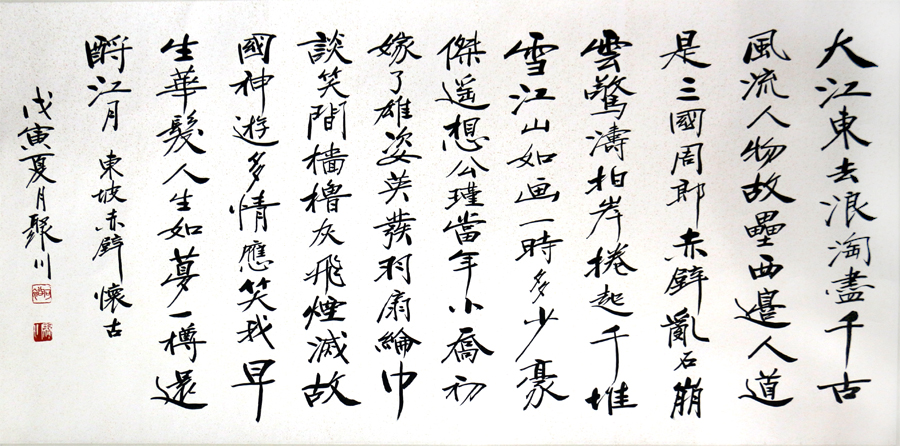 大江東去浪淘盡千古
風流人物故壘西邊人道
是三國周郎赤壁亂石崩
雲驚濤拍岸捲起千堆
雪江山如画一時多少豪
傑遥想公瑾當年小喬初
嫁了雄姿英發羽扇綸巾
談笑間檣櫓灰飛煙滅故
國神遊多情應笑我早
生華髮人生如夢一樽還
酹江月 東坡赤壁懷古
戊寅夏月聚川